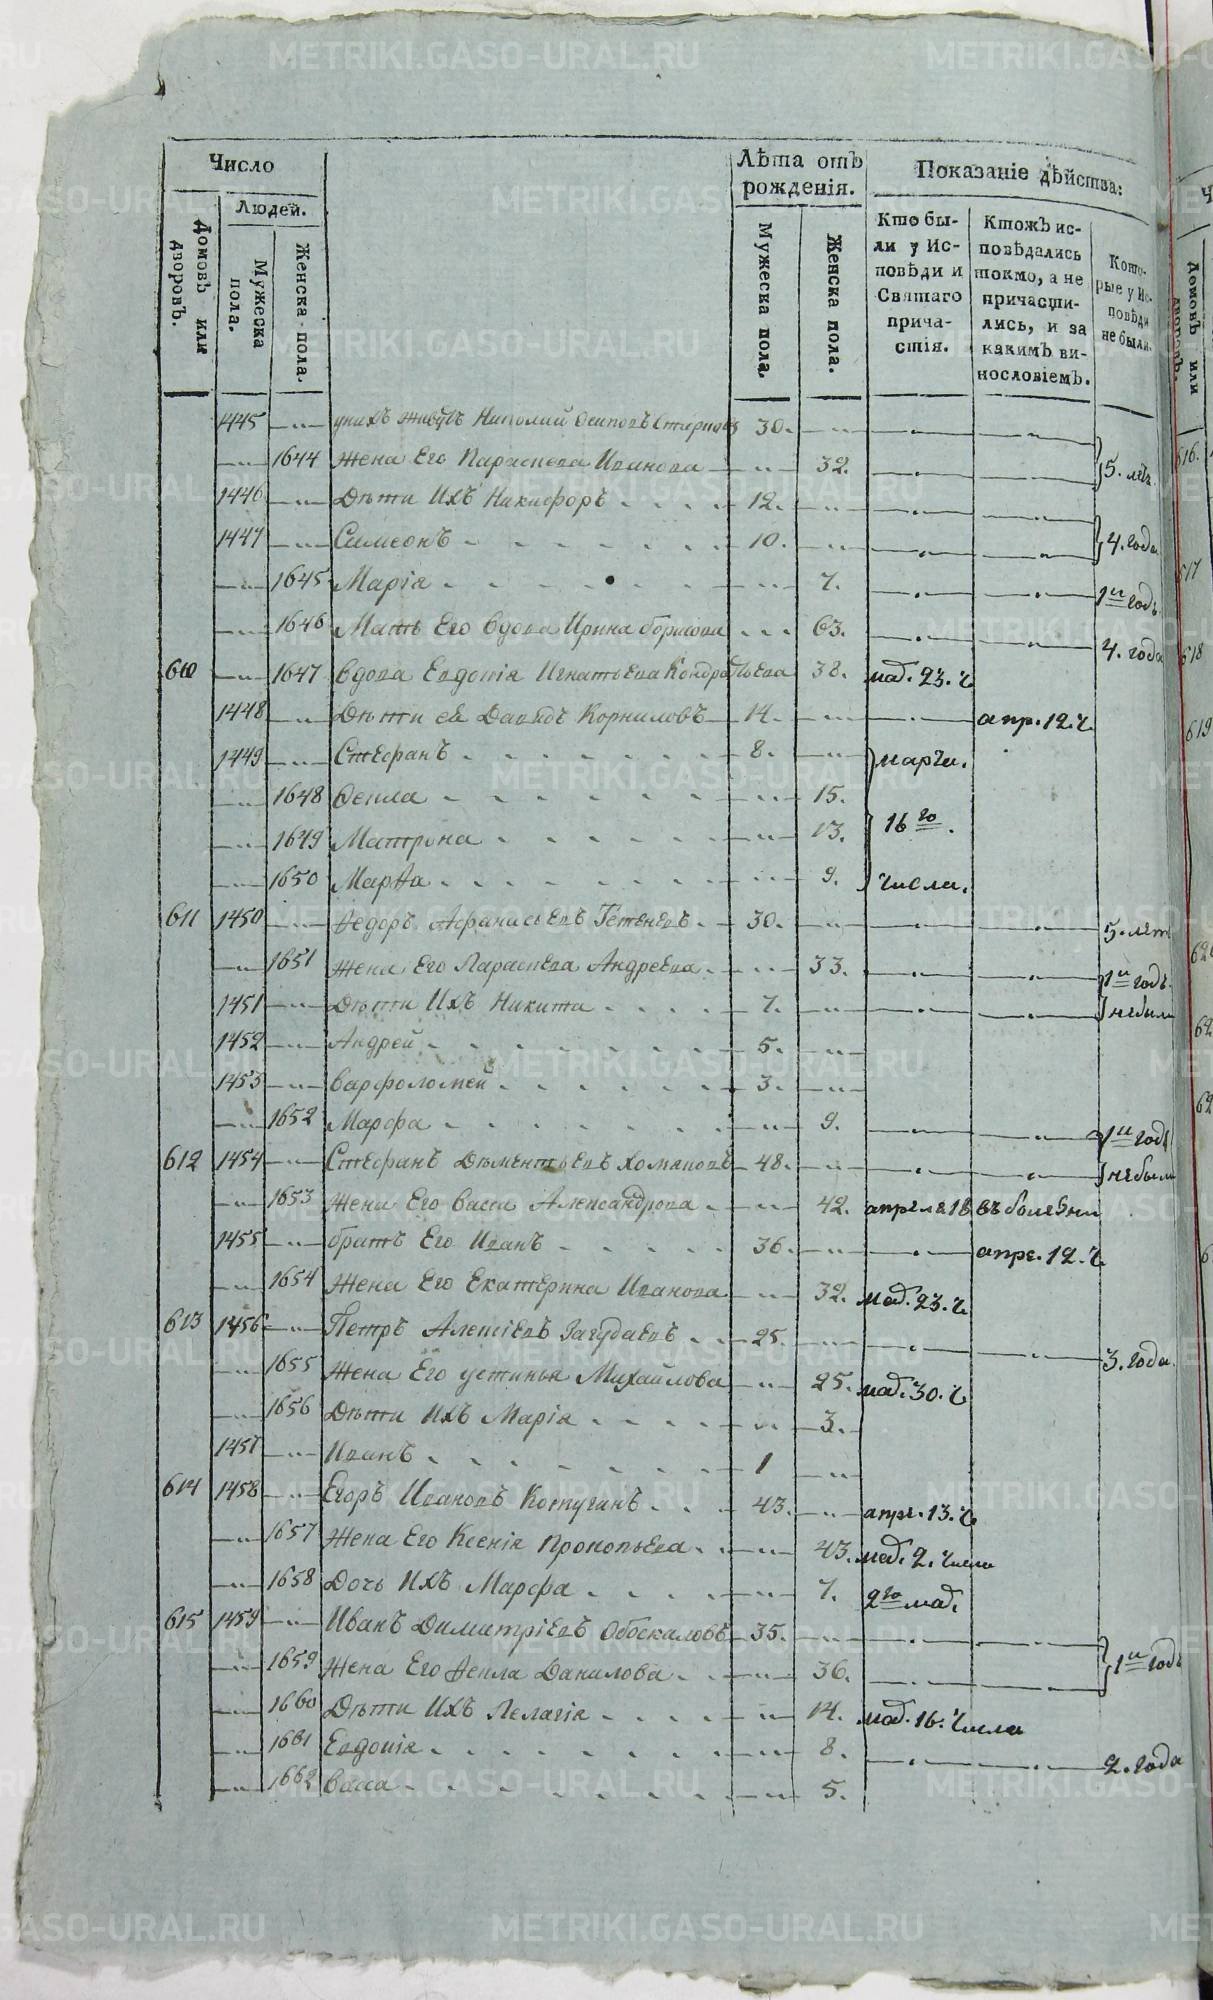 Число
Лѣта отъ рожденія.
Показаніе дѣйства:
Домовъ или дворовъ.
Людей.
Мужеска пола.
Женска пола.
Мужеска пола.
Женска пола.
Кто бы-
ли у Ис-
повѣди и
Святаго
прича-
стія.
Ктожъ ис-
повѣдались
токмо, а не
причасти-
лись, и за
какимъ ви-
нословіемъ.
Кото-
рые у Ис-
повѣди
не были.
1445 у нихъ живутъ Николай Осиповъ 30. 5. лѣт
1644 Жена Его Параскева Иванова 32.
1446 Дѣти Ихъ Никифоръ 12.
1447 Симеонъ 10. 4. года
1645 Марія 7. 1й годъ
1646 Мать Его вдова Ирина борисова 63. 4. года
610 1647 вдова Евдокія Игнатьева Кондратьева 38. маі. 23. ч
1448 Дѣти ея Давидъ Корниловъ 14. апр. 12. ч
1449 Стефанъ 8. марта.
1648 Фекла 15.
1649 Матрона 13. 16го.
1650 Марѳа 9. числа.
611 1450 Федоръ Афанасьевъ 30. 5. лѣт
1651 Жена Его Параскева Андреева 33. 1й годъ
1451 Дѣти Ихъ Никита 7. небыли
1452 Андрей 5.
1453 варфоломей 3.
1652 Марфа 9. 1й годъ
612 1454 Стефанъ Дѣментьевъ Хомяковъ 48. небыли
1653 Жена Его васса Александрова 42. апреля 18 въ болезни
1455 братъ Его Иванъ 36. апре. 12. ч
1654 Жена Его Екатерина Иванова 32. маі. 23. ч
613 1456 Петръ Алексіевъ Загудаевъ 25. 3. года
1655 Жена Его устинья Михайлова 25. маі. 30. ч
1656 Дѣти Ихъ Марія 3.
1457 Иванъ 1
614 1458 Егоръ Ивановъ Котуганъ 43. апре. 13. ч
1657 Жена Его Ксенія Прокопьева 43. маі. 2. числа
1658 Дочь Ихъ Марфа 7. 2го маі.
615 1459 Иванъ Димитріевъ Обоскаловъ 35. 1й годъ
1659 Жена Его Фекла Данилова 36.
1660 Дѣти Ихъ Пелагія 14. маі. 16. числа
1661 Евдокія 8. 2. года
1662 васса 5.
616.
617
618
619
METRIKI.GASO-URAL.RU